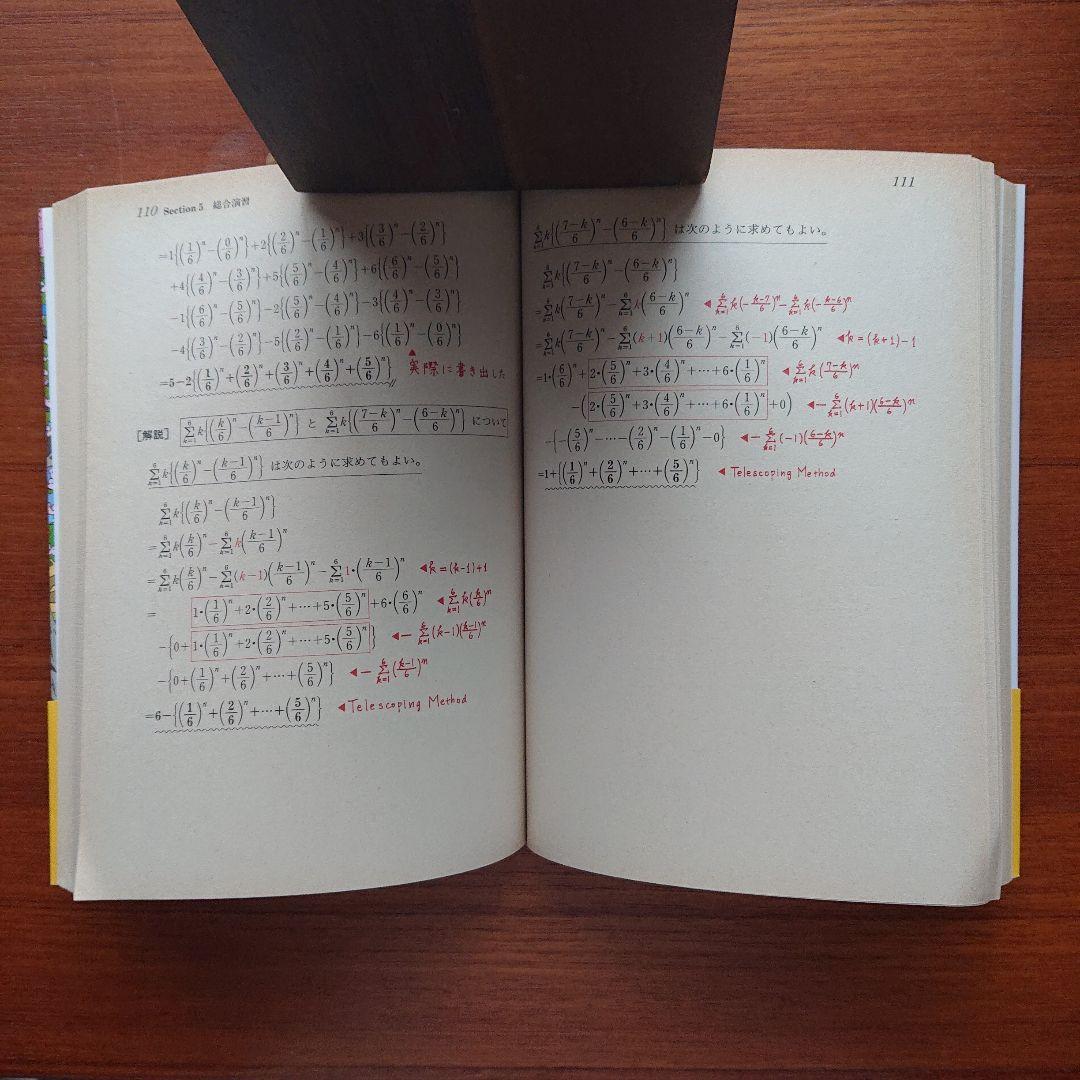 110 Section 5 総合演習
=1{(1/6)^n−(0/6)^n}+2{(2/6)^n−(1/6)^n}+3{(3/6)^n−(2/6)^n}
+4{(4/6)^n−(3/6)^n}+5{(5/6)^n−(4/6)^n}+6{(6/6)^n−(5/6)^n}
−1{(6/6)^n−(5/6)^n}−2{(5/6)^n−(4/6)^n}−3{(4/6)^n−(3/6)^n}
−4{(3/6)^n−(2/6)^n}−5{(2/6)^n−(1/6)^n}−6{(1/6)^n−(0/6)^n}
=5−2{(1/6)^n+(2/6)^n+(3/6)^n+(4/6)^n+(5/6)^n} ▲実際に書き出した
[解説] Σ_{k=1}^{6} k{(k/6)^n−(k−1/6)^n} と Σ_{k=1}^{6} k{(7−k/6)^n−(6−k/6)^n} について
Σ_{k=1}^{6} k{(k/6)^n−(k−1/6)^n} は次のように求めてもよい。
Σ_{k=1}^{6} k{(k/6)^n−(k−1/6)^n}
=Σ_{k=1}^{6} k(k/6)^n−Σ_{k=1}^{6} k(k−1/6)^n
=Σ_{k=1}^{6} k(k/6)^n−Σ_{k=1}^{6} (k−1)(k−1/6)^n−Σ_{k=1}^{6} 1•(k−1/6)^n ◀k=(k−1)+1
= 1•(1/6)^n+2•(2/6)^n+⋯+5•(5/6)^n+6•(6/6)^n ◀Σ_{k=1}^{6} k(k/6)^n
−{0+1•(1/6)^n+2•(2/6)^n+⋯+5•(5/6)^n} ◀−Σ_{k=1}^{6} (k−1)(k−1/6)^n
−{0+(1/6)^n+(2/6)^n+⋯+(5/6)^n} ◀−Σ_{k=1}^{6} (k−1/6)^n
=6−{(1/6)^n+(2/6)^n+⋯+(5/6)^n} ◀Telescoping Method
111
Σ_{k=1}^{6} k{(7−k/6)^n−(6−k/6)^n} は次のように求めてもよい。
Σ_{k=1}^{6} k{(7−k/6)^n−(6−k/6)^n}
=Σ_{k=1}^{6} k(7−k/6)^n−Σ_{k=1}^{6} k(6−k/6)^n ◀Σ_{k=1}^{6} k(−k−7/6)^n−Σ_{k=1}^{6} k(−k−6/6)^n
=Σ_{k=1}^{6} k(7−k/6)^n−Σ_{k=1}^{6} (k+1)(6−k/6)^n−Σ_{k=1}^{6} (−1)(6−k/6)^n ◀k=(k+1)−1
=1•(6/6)^n+2•(5/6)^n+3•(4/6)^n+⋯+6•(1/6)^n ◀Σ_{k=1}^{6} k(7−k/6)^n
−(2•(5/6)^n+3•(4/6)^n+⋯+6•(1/6)^n+0) ◀−Σ_{k=1}^{6} (k+1)(6−k/6)^n
−{−(5/6)^n−⋯−(2/6)^n−(1/6)^n−0} ◀−Σ_{k=1}^{6} (−1)(6−k/6)^n
=1+{(1/6)^n+(2/6)^n+⋯+(5/6)^n} ◀Telescoping Method